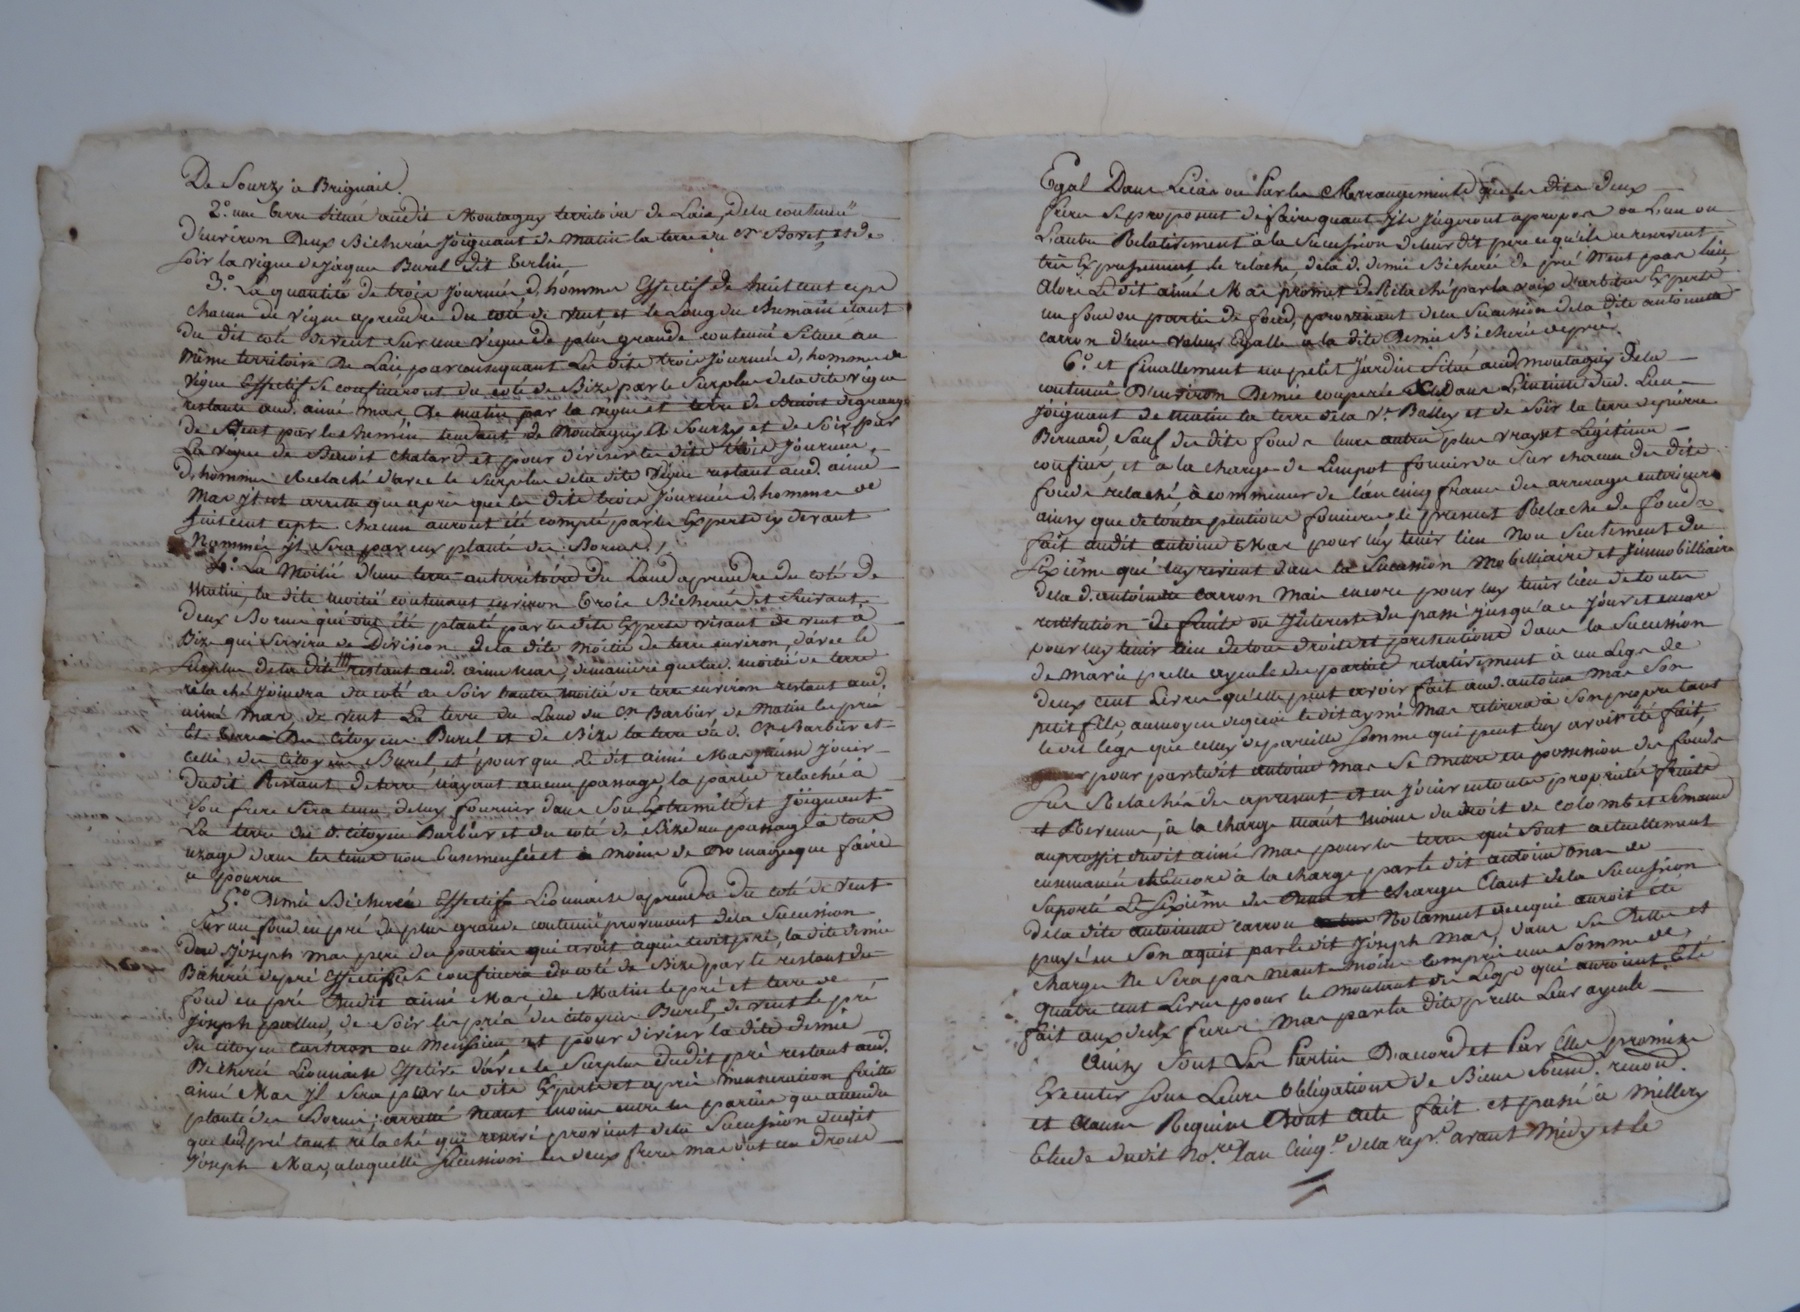 De Sourzy a Brignais.
2.° une terre située audit Montagny territoire de Laie, dela contenüe
d'environ Deux Bicherée Joignant de matin la terre de Cn Bovet, et de
soir la vigne de Jâque Burel dit Berlin
3.° La quantité de trois Journée d'homme Effectif de huit cent ceps
chacun de vigne aprendre du coté de vent, et le Long du chemain étant
du dit coté de vent sur une vigne de plus grande contenüe située au
même territoire de Laie, parconsequant Les dite trois Journée d'homme de
vigne Effectif se confineront du coté de Bize par le surplus de la dite vigne
restante aud. aimé mas De matin par la vigne et terre de Benoit degrange
de vent par le chemin tendant de Montagny a Sourzy et de Soir par
La vigne de Benoit Chatard et pour diviser les dite trois Journée
d'homme Relaché d'avec le surplus dela dite vigne restant aud. aimé
Mas jl est arretté que apres que les dite trois Journée d'homme de
huit cent cepts chacun auront été compté par les Experts cy devant
Nommée jl sera par eux planté des Bornes,
4.° La Moitié d'une terre au territoire du Laud aprendre du coté de
Matin, la dite moitié contenant environ trois Bicherée et suivant
deux Bornes qui ont été planté par les dits Experts visant de vent à
Bize qui servira de Division dela dite moitié de terre environ, d'avec le
surplus de la dite restant aud. aimé mas, demaniere que lad. moitié de terre
relaché joindra du coté de soir l'autre moitié de terre environ restant aud.
aimé mas, de vent La terre du Laud du Cn Barbier, de Matin les prés
et terre Du Citoyen Burel et de Bize la terre du d. Cn Barbier et
celle du Citoyen Burel, et pour que Le dit aimé Mas puisse Jouir
dudit Restant de terre n'ayant aucun passage, la partie relachée à
son frere sera tenu de luy fournir dans son Extremité et Joignant
La terre du d. Citoyen Barbier et du coté de Bize un passage à tous
uzage dans les tems non Ensemensée et a moins de Domage que faire
ce pourra
5.° Demie Bicherée Effectif Lionnoise aprendre du coté de vent
sur un fond en pré de plus grande contenüe provenant dela succession
dud Jôseph mas pere des parties qui avoit aquis ledit pré, la dite demie
Bicherée de pré Effectif se confinera du coté de Bize par le restant du
fond en pré dudit aimé Mas de Matin le pré et terre de
Joseph pallud, de soir les prés du citoyen Burel, de vent le pré
du citoyen et pour diviser la dite demie
Bicherée Lionnoise Effective d'avec le surplus dudit pré restant aud.
aimé Mas jl sera par les dits Experts et après faitte
planté des Bornes; arretté neant moins entre les parties que attendu
que led pré tant relaché que reservé provient dela succession dudit
Joseph Mas, alaquelle succession les deux freres mas ont un droit
Egal Dans Le cas ou par les Arrangements que les dits deux
freres se proposent de faire quant jls jugeront apropos ou L'un ou
L'autre Relativement à la succession de leur dit pere ce qu'ils ce reservent
très Expressement le relache, dela d. demie Bicherée de pré n'eut pas lieu,
alors Le dit aimé Mas promet de Relaché par la voix d'arbitre Experts
un fond ou partie de fond, provenant dela succession dela dite antoinette
carron d'une valeur Egalle a la dite Demie Bicherée de pré.
6.° et finallement un petit Jardin situé aud montagny dela
contenüe D'environ Demie couperée Dans L'enceinte dud. Lieu
joignant de matin la terre dela Ve Balley et de soir la terre de pierre
Bernard, sauf des dits fonds leurs autres plus vrays et Legitime
confins, et a la charge de L'impot foncier dû sur chacun des dits
fonds relaché à commencer de l'an cinq franc des arrerages anterieurs
ainsy que de toutes prestations foncieres le present Relache de fonds
fait audit antoine Mas pour luy tenir lieu Non seulement du
sixiême qui luy revient dans la succession Mobilliaire et Jimmobilliaire
dela d. antoinette carron mais encore pour luy tenir lieu de toutes
restitution de fruits ou jnterests du passé jusqu'a ce jour et encore
pour luy tenir lieu de tous droits et pretentions dans la succession
de marie prelle ayeule des parties relativement à un Legs de
deux cent Livres qu'elle peut avoir fait aud. antoine mas son
petit fils, au moyen dequoi le dit aymé Mas retirera à son propre tant
le dit legs que celuy de pareille somme qui peut luy avoir été fait,
pour par ledit antoine mas se mettre en possession des fonds
sus Relachés dès apresent et en jouir en toute propriété fruits
et Revenus, à la charge neant moins du droit de colombet semance
au proffit dudit aimé Mas pour les terres qui sont actuellement
ensemancée et Encore à la charge par le dit antoine mas de
suporté Le sixiême des et charges Etant dela succession
dela dite antoinette carron Notament de ce qui auroit été
payé en son aquit par le dit joseph Mas, dans ces Dettes et
charge Ne sera pas neant moins comprise une somme de
quatre cent Livres pour le montant des Legs qui auroient été
fait aux deux freres Mas par la dite prelle Leur ayeule
Ainsy sont Les Parties D'accord et Par Elles promise
Executer sous Leurs obligations de Biens soumd. renond.
et clause Requise Dont acte fait et passé à Millery
Etude dudit No.re l'an cinq.e dela rep.e avant midy et le